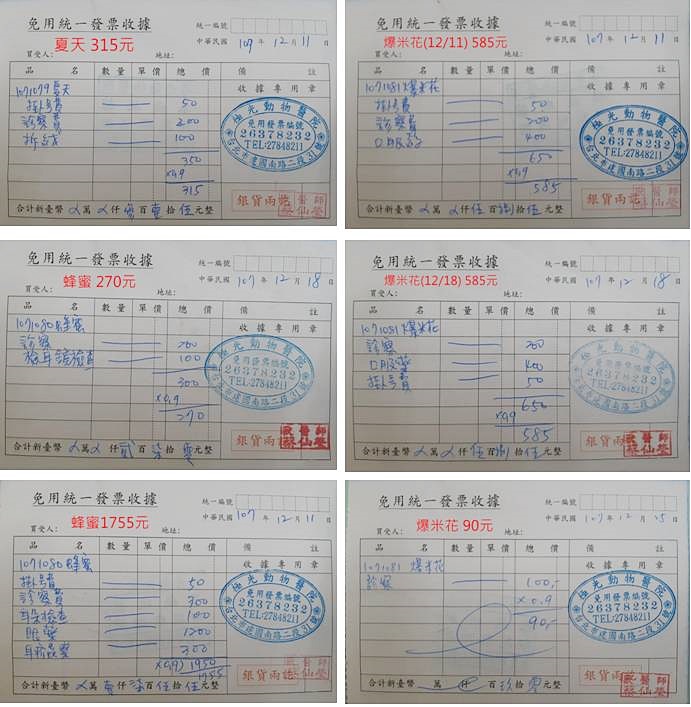 免用統一發票收據
統一編號
夏天 315元
中華民國 107年 12月 11日
買受人： 地址：
品名 數量 單價 總價 備註
收據專用章
107079夏天
掛号費 50
診察費 200
拆線 100
350
×0.9
315
極光動物醫院
免用發票編號
26378232
TEL:27848211
台北市建國南路二段31號
銀貨兩訖
合計新臺幣 萬 仟 參百壹拾伍元整
免用統一發票收據
統一編號
爆米花(12/11) 585元
中華民國 107年 12月 11日
買受人： 地址：
品名 數量 單價 總價 備註
收據專用章
107081爆米花
掛号費 50
診察費 200
口服藥 400
650
×0.9
585
極光動物醫院
免用發票編號
26378232
TEL:27848211
台北市建國南路二段31號
銀貨兩訖
合計新臺幣 萬 仟伍百捌拾伍元整
免用統一發票收據
統一編號
蜂蜜 270元
中華民國 107年 12月 18日
買受人： 地址：
品名 數量 單價 總價 備註
收據專用章
107080蜂蜜
診察 200
檢耳鏡檢查 100
300
×0.9
270
極光動物醫院
免用發票編號
26378232
TEL:27848211
台北市建國南路二段31號
銀貨兩訖
合計新臺幣 萬 仟 貳百柒拾零元整
免用統一發票收據
統一編號
爆米花(12/18) 585元
中華民國 107年 12月 18日
買受人： 地址：
品名 數量 單價 總價 備註
收據專用章
107081爆米花
診察 200
口服藥 400
掛号費 50
650
×0.9
585
極光動物醫院
免用發票編號
26378232
TEL:27848211
台北市建國南路二段31號
銀貨兩訖
合計新臺幣 萬 仟伍百捌拾伍元整
免用統一發票收據
統一編號
蜂蜜1755元
中華民國 107年 12月 11日
買受人： 地址：
品名 數量 單價 總價 備註
收據專用章
107080蜂蜜
掛号費 50
診察費 300
耳朵檢查 100
眼藥 1200
300
×0.9 1950
1755
極光動物醫院
免用發票編號
26378232
TEL:27848211
台北市建國南路二段31號
銀貨兩訖
合計新臺幣 萬壹仟柒百伍拾伍元整
免用統一發票收據
統一編號
爆米花 90元
中華民國 107年 12月 25日
買受人： 地址：
品名 數量 單價 總價 備註
收據專用章
107081 爆米花
診察 100.-
×0.9
90.-
極光動物醫院
免用發票編號
26378232
TEL:27848211
台北市建國南路二段31號
銀貨兩訖
合計新臺幣 萬 仟 百玖拾零元整